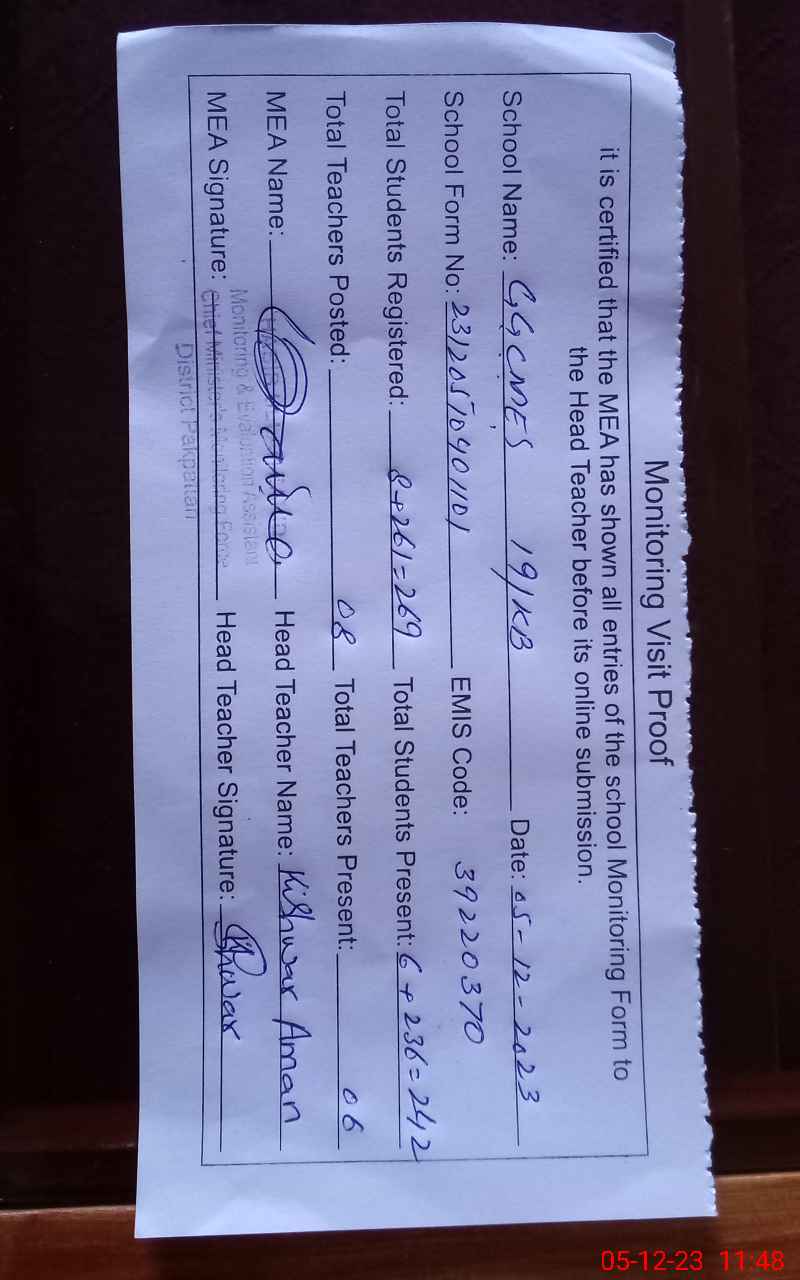 Monitoring Visit Proof
it is certified that the MEA has shown all entries of the school Monitoring Form to
the Head Teacher before its online submission.
School Name: GGCMES 19/KB Date: 05-12-2023
School Form No: 23120510901101 EMIS Code: 39220370
Total Students Registered: 8+261=269 Total Students Present: 6+236=242
Total Teachers Posted: 08 Total Teachers Present: 06
MEA Name: Head Teacher Name: Kishwar Aman
Monitoring & Evaluation Assistant
MEA Signature: Chief Minister's Monitoring Force Head Teacher Signature: Kishwar
District Pakpattan
05-12-23 11:48